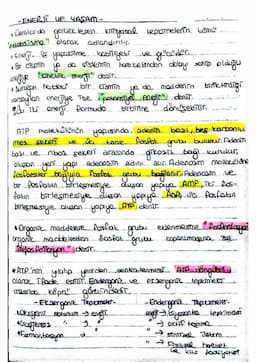 -ENERJİ VE YAŞAM-
• Canlılarda gerçekleşen kimyasal tepkimelerin tümü
"metabolizma" olarak adlandırılır.
• Enerji iş yapabilme kabiliyeti ve gücüdür.
• Bir cismin ya da sistemin hareketinden dolayı sahip olduğu
enerjiye "kinetik enerji" denir.
bir cismin ya da maddenin birikimi
enerjiye ise "potansiyel enerji" denir.
• Bu iki enerji formuda birbirine dönüşebilir.
ATP molekülünün yapısında; adenin bazı, beş karbonlu
riboz şekeri ve üç tane fosfat grubu bulunur. Adenin
bazı ve riboz şekeri arasında glikozit bağı kurulur,
oluşan yeni yapı adenozin adını alır. Adenozin molekülüne
fosfoester bağıyla fosfat grubu bağlanır. Adenozin ve
bir fosfatın birleşmesiyle oluşan yapıya AMP, iki fos-
fatın birleşmesiyle oluşan yapıya ADP, üç fosfatın
birleşmesiyle oluşan yapıya ATP denir.
• Organik maddelere fosfat grubu eklenmesine "fosforilasyon"
organik maddelerden fosfat grubu koparılmasına ise
"defosforilasyon" denir.
• ATP'nin yıkılıp yeniden sentezlenmesi "ATP döngüsü"
olarak ifade edilir. Endergonik ve ekzergonik tepkimeler
arasında köprü görevindedir.
- Ekzergonik Tepkimeler-
• Oksijenli solunum → enerji
• Oksijensiz " → "
• Fermantasyon → "
- Endergonik Tepkimeler-
enerji → biyosentez tepkimeleri
" → aktif taşıma
" → sinirsel iletim
" → hareket
ve kas faaliyetleri